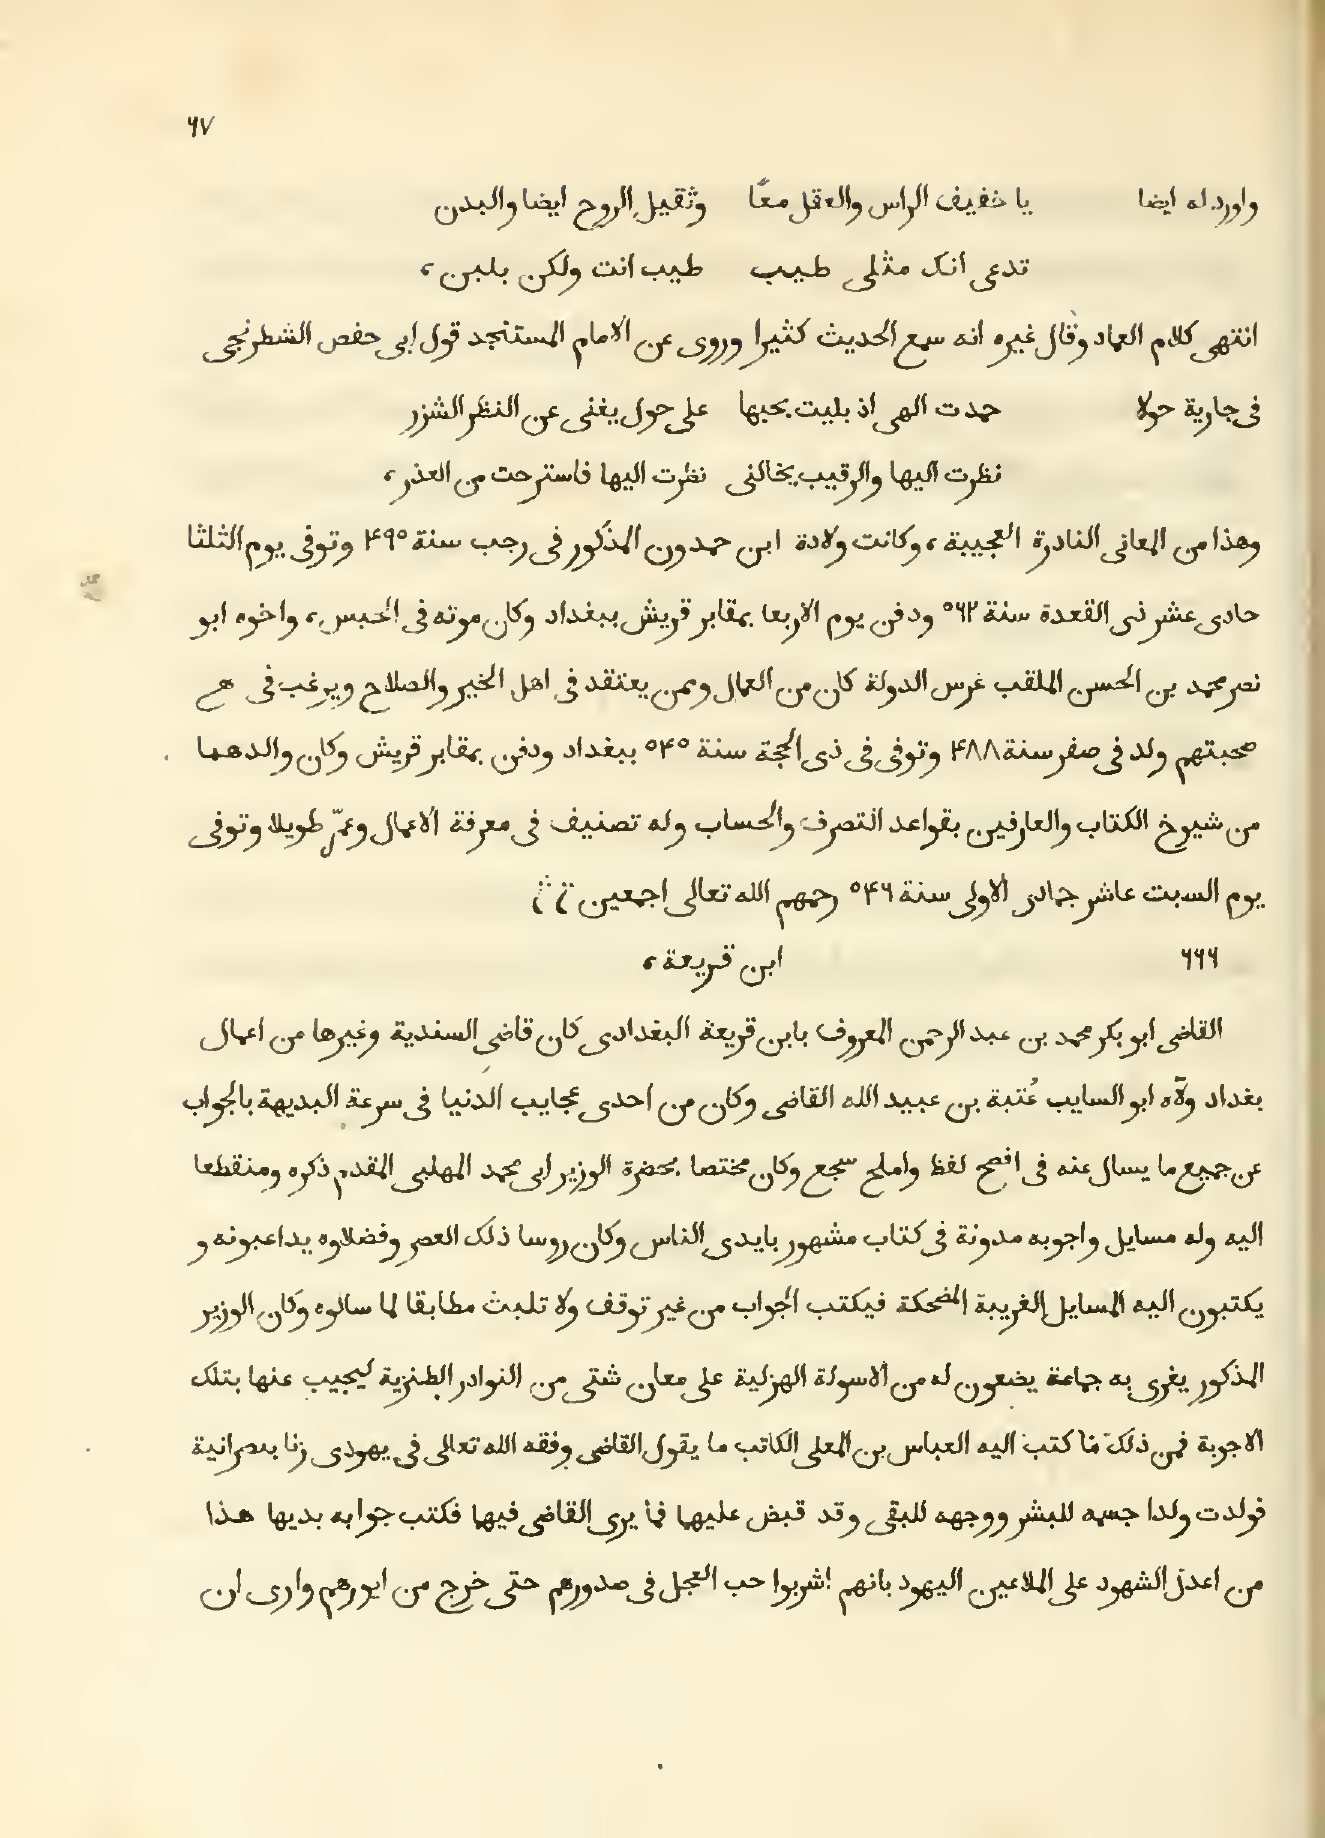 ٦٧
واورد له ايضا يا خفيف الراس والعقل معًا وثقيل الروح ايضا والبدن
تدعى انك مثلى طيب طيب انت ولكن بلبن،
انتهى كلام العماد وقال غيره انه سمع الحديث كثيرا وروى عن الامام المستنجد قول ابى حفص الشطرنجى
فى جارية حولا حمدت الهى اذ بليت بحبها على حول يغنى عن النظر الشزر
نظرت اليها والرقيب يخالنى نظرت اليها فاسترحت من العذر،
وهذا من المعانى النادرة العجيبة، وكانت ولادة ابن حمدون المذكور فى رجب سنة ۴۹٥ وتوفى يوم الثلثا
حادى عشر ذى القعدة سنة ٥٦٢ ودفن يوم الاربعا بمقابر قريش ببغداد وكان موته فى الحبس، واخوه ابو
نصر محمد بن الحسن الملقب غرس الدولة كان من العمال وممن يعتقد فى اهل الخير والصلاح ويرغب فى
صحبتهم ولد فى صفر سنة ۴٨٨ وتوفى فى ذى الحجة سنة ٥۴٥ ببغداد ودفن بمقابر قريش وكان والدهما
من شيوخ الكتاب والعارفين بقواعد التصرف والحساب وله تصنيف فى معرفة الاعمال وعمّر طويلا وتوفى
يوم السبت عاشر جمادى الاولى سنة ٥۴٦ رحمهم الله تعالى اجمعين
٦٦٦ ابن قريعة،
القاضى ابو بكر محمد بن عبد الرحمن المعروف بابن قريعة البغدادى كان قاضى السندية وغيرها من اعمال
بغداد ولّاه ابو السايب عُتبة بن عبيد الله القاضى وكان من احدى عجايب الدنيا فى سرعة البديهة بالجواب
عن جميع ما يسال عنه فى افصح لفظ واملح سجع وكان مختصا بحضرة الوزير ابى محمد المهلبى المقدم ذكره ومنقطعا
اليه وله مسايل واجوبه مدونة فى كتاب مشهور بايدى الناس وكان روسا ذلك العصر وفضلاوه يداعبونه و
يكتبون اليه المسايل الغريبة المضحكة فيكتب الجواب من غير توقف ولا تلبث مطابقا لما سالوه وكان الوزير
المذكور يغرى به جماعة يضعون له من الاسولة الهزلية على معان شتى من النوادر الطنزية ليجيب عنها بتلك
الاجوبة فمن ذلك ما كتب اليه العباس بن المعلى الكاتب ما يقول القاضى وفقه الله تعالى فى يهودى زنا بنصرانية
فولدت ولدا جسمه للبشر ووجهه للبقر وقد قبض عليهما فما يرى القاضى فيها فكتب جوابه بديها هذا
من اعدل الشهود على الملاعين اليهود بانهم اشربوا حب العجل فى صدورهم حتى خرج من ايورهم وارى ان